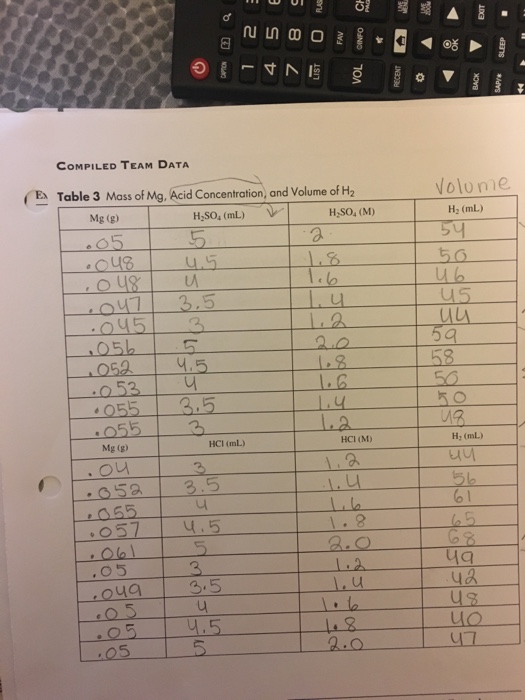 CAPTION
1 2
4 5
7 8
LIST 0 FLAS
FAV
VOL GINFO
RECENT
OK
BACK EXIT
SAP/* SLEEP
COMPILED TEAM DATA
Ex Table 3 Mass of Mg, Acid Concentration, and Volume of H₂ Volume
Mg (g) H₂SO₄ (mL) H₂SO₄ (M) H₂ (mL)
.05 5 2 54
.048 4.5 1.8 50
.048 4 1.6 46
.047 3.5 1.4 45
.045 3 1.2 44
.056 5 2.0 59
.052 4.5 1.8 58
.053 4 1.6 50
.055 3.5 1.4 50
.055 3 1.2 48
Mg (g) HCl (mL) HCl (M) H₂ (mL)
.04 3 1.2 44
.052 3.5 1.4 56
.055 4 1.6 61
.057 4.5 1.8 65
.061 5 2.0 68
.05 3 1.2 49
.049 3.5 1.4 42
.05 4 1.6 48
.05 4.5 1.8 40
.05 5 2.0 47